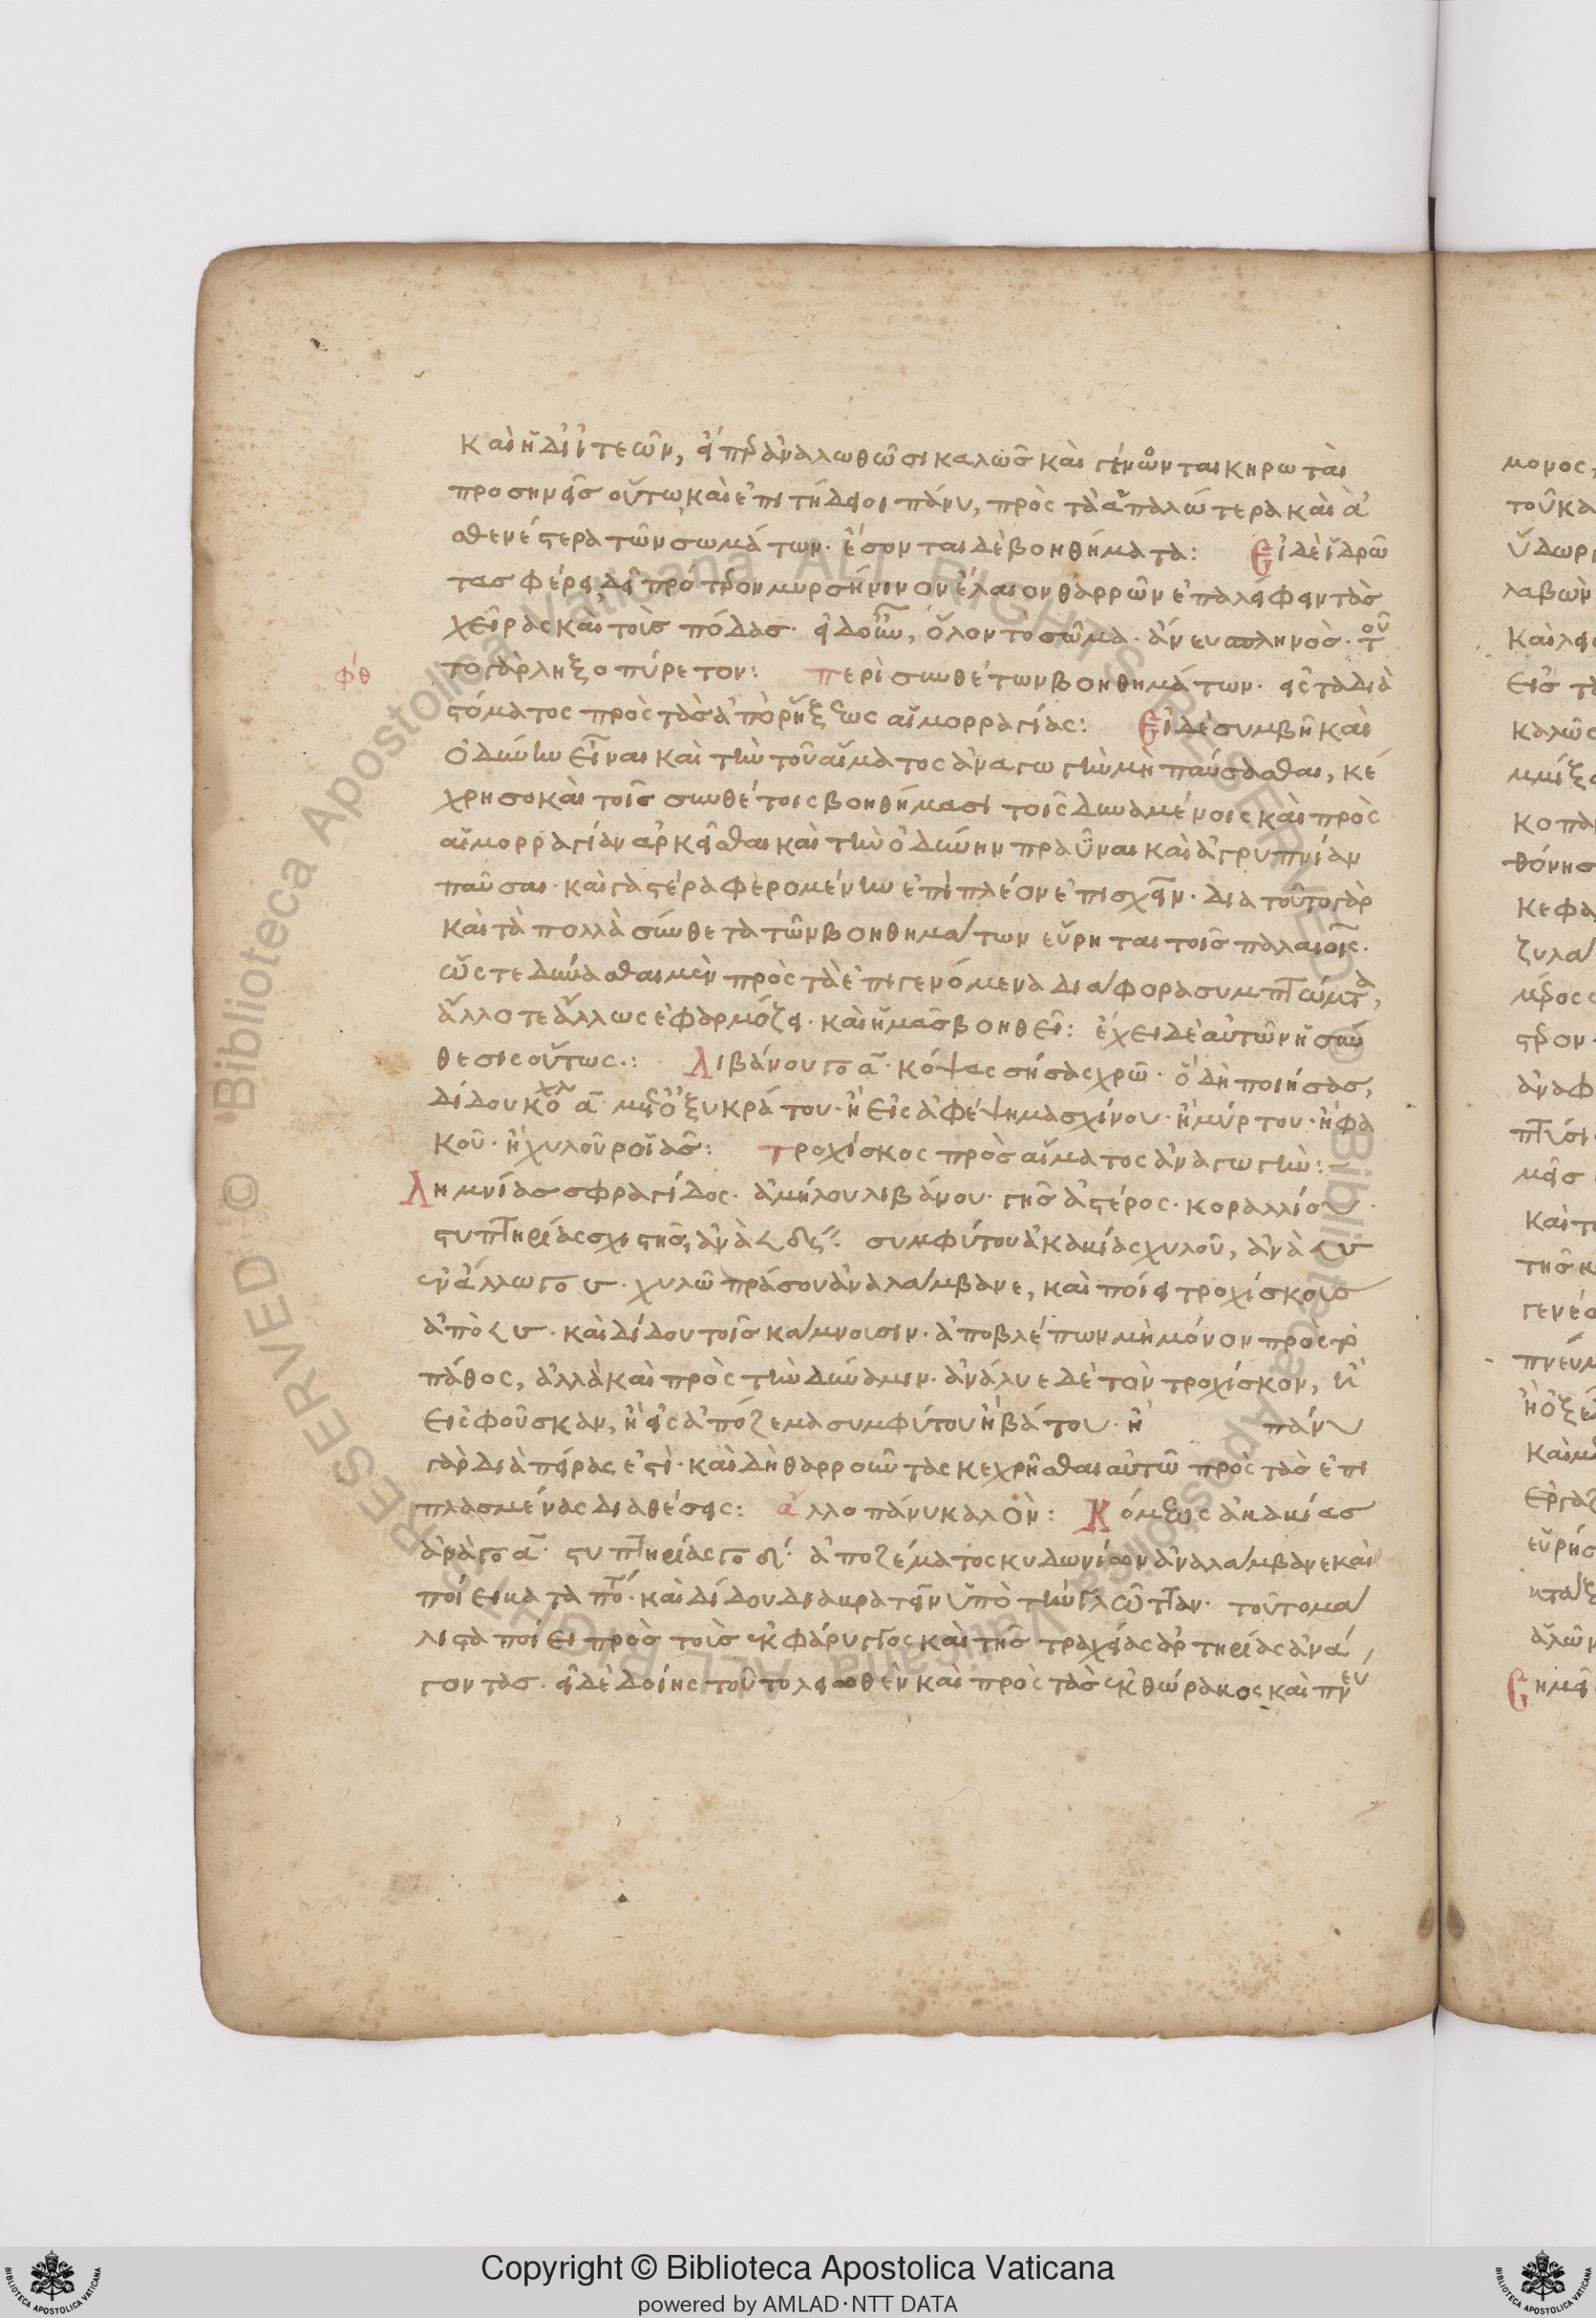 καὶ ἡ δι' ἰτεῶν, εἴπερ ἀναλωθῶσι καλῶς καὶ γένωνται κηρωταὶ
προσηνεῖς οὕτω καὶ ἐπιτήδειοι πάνυ, πρὸς τὰ ἁπαλώτερα καὶ ἀ
σθενέστερα τῶν σωμάτων. ἔσονται δὲ βοηθήματα: Εἰ δὲ ἱδρῶ
τας φέρει, δεῖ πρότερον μυρσήνινον ἔλαιον θαρρῶν ἐπαλείφειν τὰς
χεῖρας καὶ τοῖς πόδας. εἰ δοκεῖ, ὅλον τὸ σῶμα. ἄνευ σπληνὸς. τοῦ
το γὰρ ληξοπύρετον: περὶ συνθέτων βοηθημάτων. εἰς τὰ διὰ
φθ
στόματος πρὸς τὰς ἀπὸ ῥήξεως αἱμορραγίας: Εἰ δὲ συμβῇ καὶ
ὀδύνην εἶναι καὶ τὴν τοῦ αἵματος ἀναγωγὴν μὴ παύσασθαι, κέ
χρησο καὶ τοῖς συνθέτοις βοηθήμασι τοῖς δυναμένοις καὶ πρὸς
αἱμορραγίαν ἀρκεῖσθαι καὶ τὴν ὀδύνην πραῧναι καὶ ἀγρυπνίαν
παῦσαι. καὶ γαστέρα φερομένην ἐπὶ πλέον ἐπισχεῖν. διὰ τοῦτο γὰρ
καὶ τὰ πολλὰ σύνθετα τῶν βοηθημάτων εὕρηται τοῖς παλαιοῖς.
ὥστε δύνασθαι μὲν πρὸς τὰ ἐπιγενόμενα διάφορα συμπτώματα,
ἄλλοτε ἄλλως ἐφαρμόζει. καὶ ἡμᾶς βοηθεῖ: ἔχει δὲ αὐτῶν ἡ σύν
θεσις οὕτως.: Λιβάνου γο α. κόψας σήσας χρῶ. ὃ δὴ ποιήσας,
δίδου κοχλ α. μετ' ὀξυκράτου. ἢ εἰς ἀφέψημα σχίνου. ἢ μύρτου. ἢ φα
κοῦ. ἢ χυλοῦ ροϊᾶς: τροχίσκος πρὸς αἵματος ἀναγωγήν:
Λημνίας σφραγίδος. ἀμήλου λιβάνου. γῆς ἀστέρος. κοραλλίου.
στυπτηρίας σχιστῆς, ἀνὰ συμφύτου ἀκακίας χυλοῦ, ἀνὰ
ἐν ἄλλω γο υ. χυλῶ πράσου ἀναλάμβανε, καὶ ποίει τροχίσκους
ἀπὸ υ. καὶ δίδου τοῖς κάμνουσιν. ἀποβλέπων μὴ μόνον πρὸς τὸ
πάθος, ἀλλὰ καὶ πρὸς τὴν δύναμιν. ἀνάλυε δὲ τὸν τροχίσκον, ἢ
εἰς φοῦσκαν, ἢ εἰς ἀπόζεμα συμφύτου ἢ βάτου. ἢ πάνυ
γὰρ διὰ πείρας ἐστὶ. καὶ δὴ θαρροῦντας κεχρῆσθαι αὐτῶ πρὸς τὰς ἐπι
πλασμένας διαθέσεις: ἄλλο πάνυ καλὸν: Κόμεως ἀκακίας
ἀνὰ γο α. στυπτηρίας γο ἀποζέματος κυδωνίων ἀναλάμβανε καὶ
ποίει καταπότ. καὶ δίδου διακρατεῖν ὑπὸ τὴν γλῶτταν. τοῦτο μά
λιστα ποιεῖ πρὸς τοὶς ἐκ φάρυγγος καὶ τῆς τραχείας ἀρτηρίας ἀνά
γοντας. εἰ δὲ δοίης τοῦτο λειωθὲν καὶ πρὸς τὰς ἐκ θώρακος καὶ πνευ
Copyright © Biblioteca Apostolica Vaticana
powered by AMLAD·NTT DATA